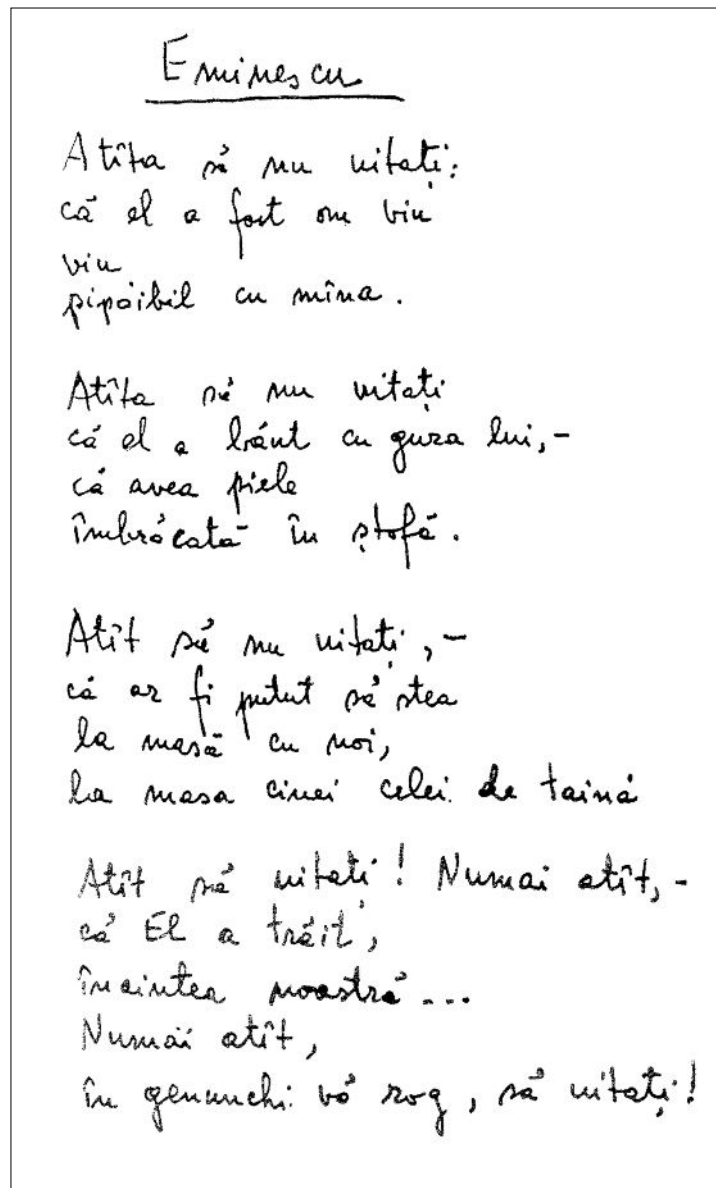 Eminescu
Atîta să nu uitați:
că el a fost om viu
viu
pipăibil cu mîna.
Atîta să nu uitați
că el a băut cu gura lui,-
că avea piele
îmbrăcată în ștofă.
Atît să nu uitați,-
că ar fi putut să stea
la masă cu noi,
la masa cinei celei de taină
Atît să uitați! Numai atît,-
că El a trăit,
înaintea noastră...
Numai atît,
în genunchi vă rog, să uitați!